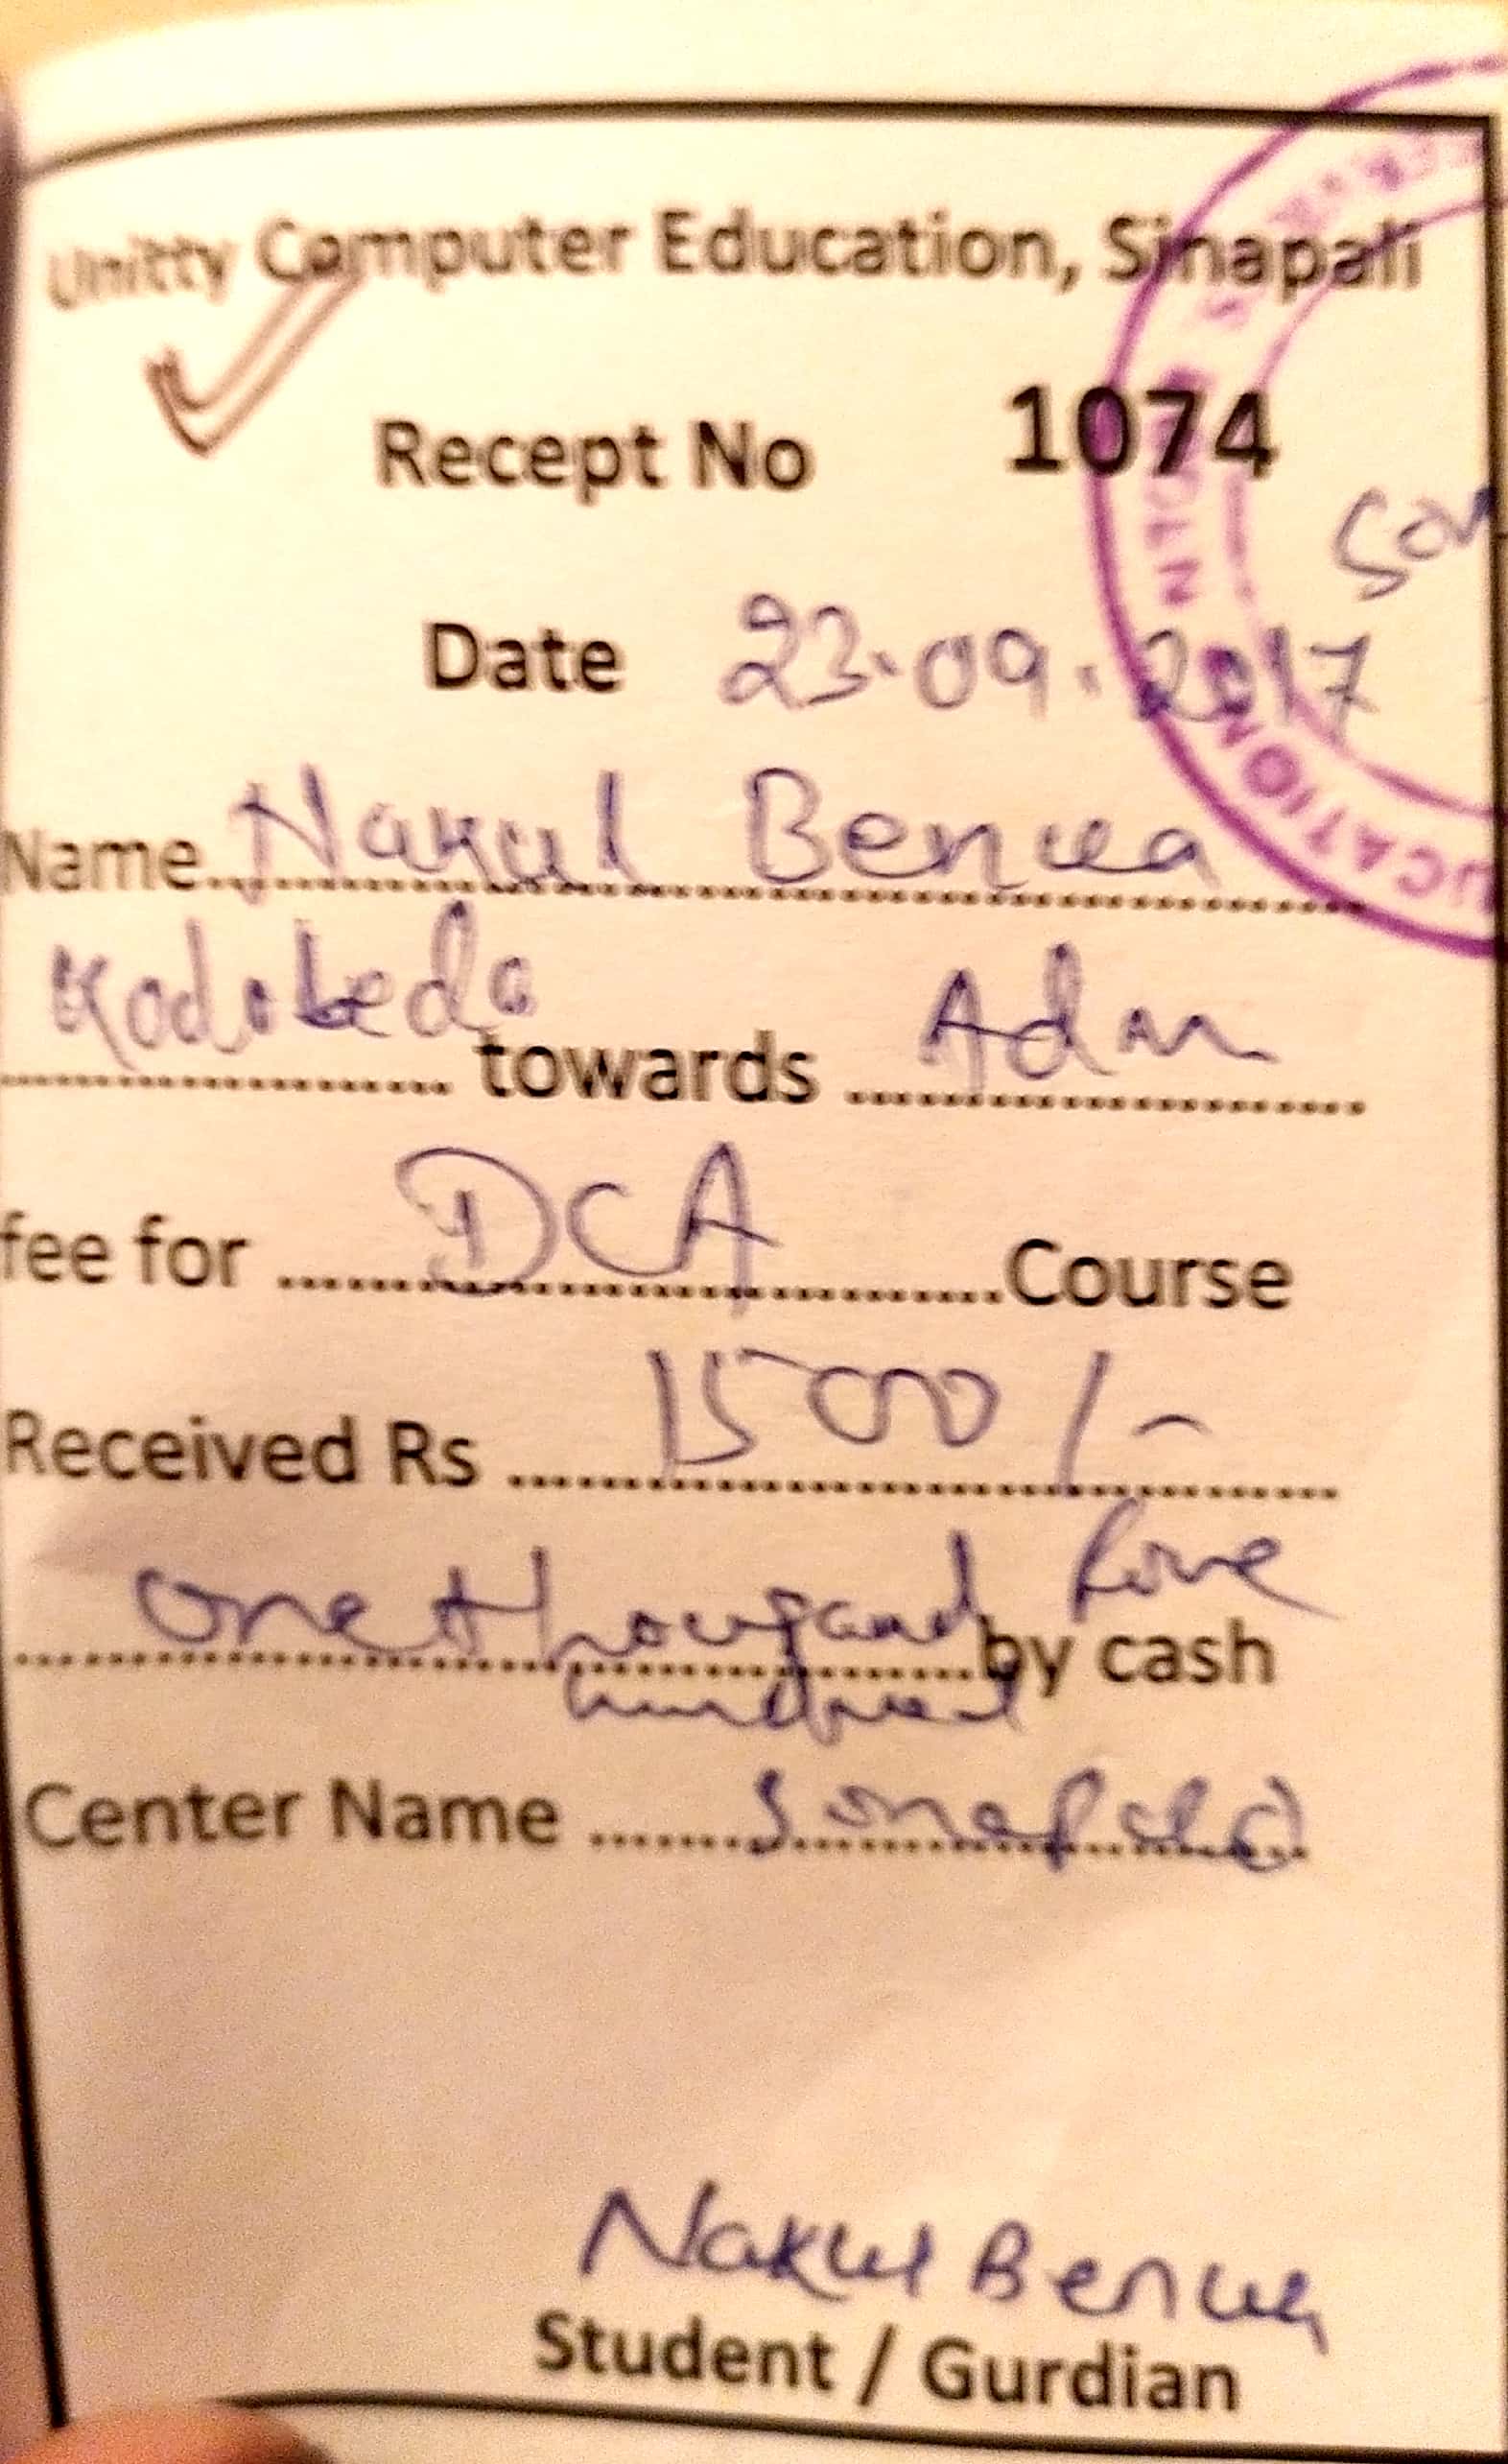 Unitty Computer Education, Sinapali
Recept No 1074
Date 23.09.2017
Name Nakul Benua
towards Adm
fee for DCA Course
Received Rs 1500/-
one thousand five
hundred by cash
Center Name
Nakul Benua
Student / Gurdian
UCATION